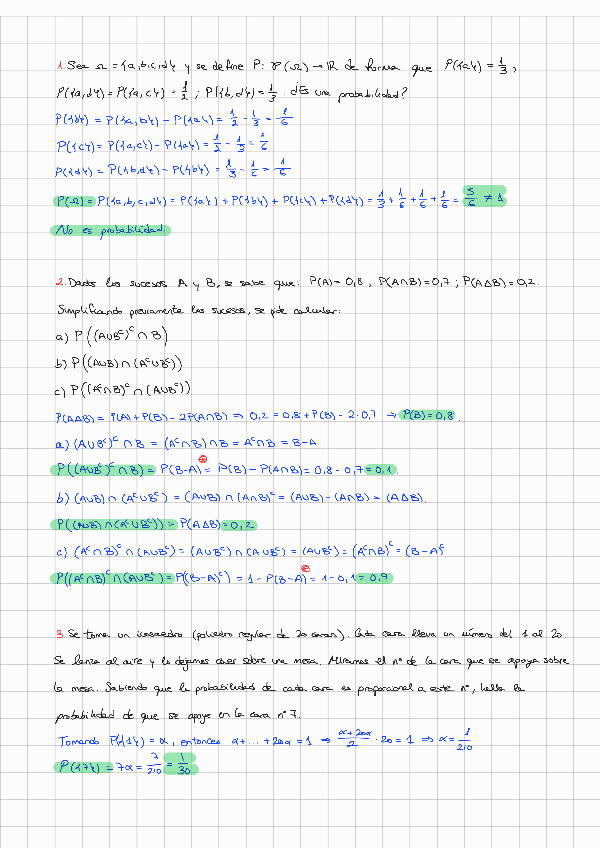 1. Sea Ω = {a,b,c,d} y se define P: P(Ω) → ℝ de forma que P({a}) = 1/3,
P({a,d}) = P({a,c}) = 1/2 ; P({b,d}) = 1/3. ¿Es una probabilidad?
P({b}) = P({a,b}) − P({a}) = 1/2 − 1/3 = 1/6
P({c}) = P({a,c}) − P({a}) = 1/2 − 1/3 = 1/6
P({d}) = P({b,d}) − P({b}) = 1/3 − 1/6 = 1/6
P(Ω) = P({a,b,c,d}) = P({a}) + P({b}) + P({c}) + P({d}) = 1/3 + 1/6 + 1/6 + 1/6 = 5/6 ≠ 1
No es probabilidad.
2. Dados los sucesos A y B, se sabe que: P(A) = 0,8, P(A∩B) = 0,7 ; P(AΔB) = 0,2.
Simplificando previamente los sucesos, se pide calcular:
a) P((A∪Bᶜ)ᶜ ∩ B)
b) P((A∪B) ∩ (Aᶜ∪Bᶜ))
c) P((Aᶜ∩B)ᶜ ∩ (A∪Bᶜ))
P(AΔB) = P(A) + P(B) − 2P(A∩B) ⇒ 0,2 = 0,8 + P(B) − 2·0,7 → P(B) = 0,8.
a) (A∪Bᶜ)ᶜ ∩ B = (Aᶜ∩B) ∩ B = Aᶜ∩B = B−A
P((A∪Bᶜ)ᶜ ∩ B) = P(B−A) = P(B) − P(A∩B) = 0,8 − 0,7 = 0,1.
b) (A∪B) ∩ (Aᶜ∪Bᶜ) = (A∪B) ∩ (A∩B)ᶜ = (A∪B) − (A∩B) = (AΔB).
P((A∪B) ∩ (Aᶜ∪Bᶜ)) = P(AΔB) = 0,2
c) (Aᶜ∩B)ᶜ ∩ (A∪Bᶜ) = (A∪Bᶜ) ∩ (A∪Bᶜ) = (A∪Bᶜ) = (Aᶜ∩B)ᶜ = (B−A)ᶜ
P((Aᶜ∩B)ᶜ ∩ (A∪Bᶜ)) = P((B−A)ᶜ) = 1 − P(B−A) = 1 − 0,1 = 0,9
3. Se toma un icosaedro (poliedro regular de 20 caras). Cada cara lleva un número del 1 al 20.
Se lanza al aire y lo dejamos caer sobre una mesa. Miramos el nº de la cara que se apoya sobre
la mesa. Sabiendo que la probabilidad de cada cara es proporcional a este nº, halla la
probabilidad de que se apoye en la cara nº 7.
Tomando P({1}) = α, entonces α + ... + 20α = 1 ⇒ (α+20α)/2 · 20 = 1 ⇒ α = 1/210
P({7}) = 7α = 7/210 = 1/30